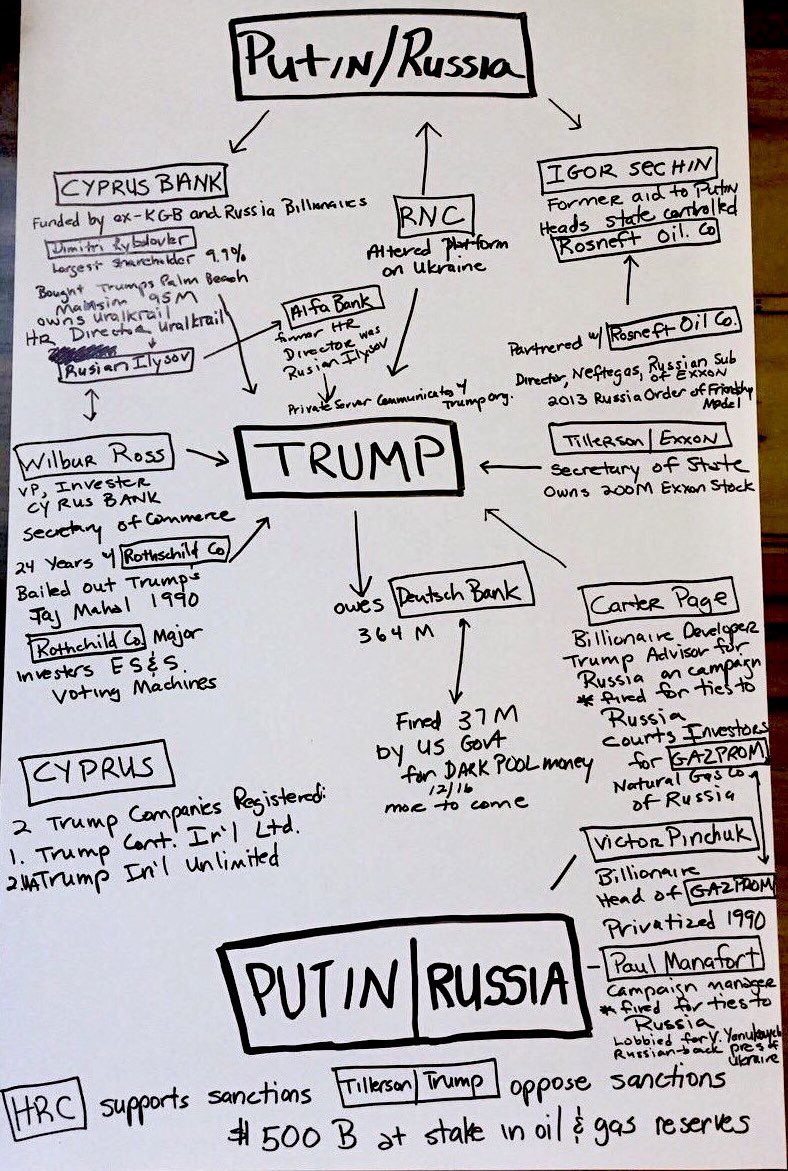 Putin/Russia
CYPRUS BANK
Funded by ex-KGB and Russia Billionaires
Dimitri Rybolovlev
Largest shareholder 9.9%
Bought Trumps Palm Beach
Mansion 95M
owns Uralkrail
HR Director Uralkrail
Rusian Ilysov
RNC
Altered platform
on Ukraine
Alfa Bank
former HR
Director was
Rusian Ilysov
Private Server Communicates w/
Trump Org.
IGOR SECHIN
Former aid to Putin
Heads state controlled
Rosneft Oil. Co
Partnered w/ Rosneft Oil Co.
Director, Neftegas, Russian Sub
of Exxon
2013 Russia Order of Friendship
Medel
Tillerson/Exxon
Secretary of State
Owns 200M Exxon Stock
TRUMP
Wilbur Ross
VP, Invester
CYPRUS BANK
Secretary of Commerce
24 Years w/ Rothschild Co
Bailed out Trump's
Taj Mahal 1990
Rothchild Co Major
Investers ES&S.
Voting Machines
owes Deutsch Bank
364 M
Fined 37M
by US Govt
for DARK POOL money
12/16
more to come
Carter Page
Billionaire Developer
Trump Advisor for
Russia on campaign
* fired for ties to
Russia
Courts Investors
for GAZPROM
Natural Gas Co
of Russia
CYPRUS
2 Trump Companies Registered:
1. Trump Cont. In'l Ltd.
2. Trump In'l Unlimited
Victor Pinchuk
Billionaire
Head of GAZPROM
Privatized 1990
Paul Manafort
Campaign manager
* fired for ties to
Russia
Lobbied for V. Yanukovych
Russian-back pres of
Ukraine
PUTIN/RUSSIA
HRC supports sanctions Tillerson/Trump oppose sanctions
$500 B at stake in oil & gas reserves